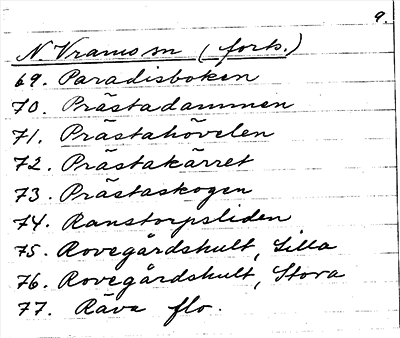 9.
N. Vramo sn (forts.)
69. Paradisboken
70. Prästadammen
71. Prästahövelen
72. Prästakärret
73. Prästaskogen
74. Ranstorpsliden
75. Rovegårdshult, Lilla
76. Rovegårdshult, Stora
77. Räva flo.